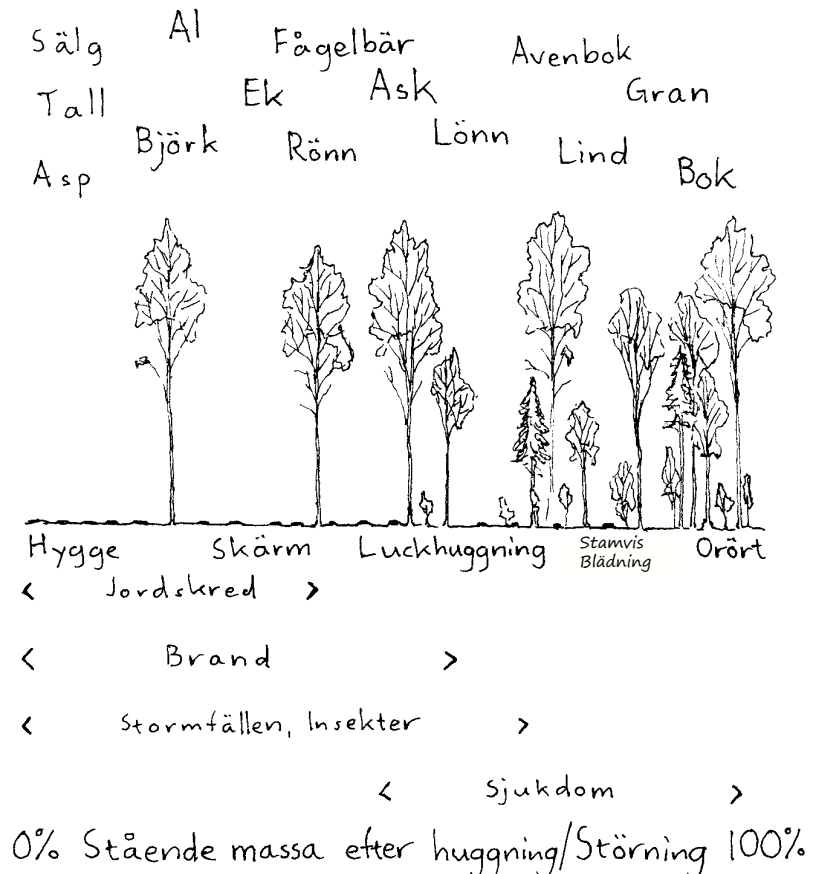 Al
Sälg
Fågelbär
Avenbok
Tall
Ek
Ask
Gran
Björk
Rönn
Lönn
Lind
Asp
Bok
Hygge Skärm Luckhuggning Stamvis Orört
Blädning
< Jordskred >
< Brand >
< Stormfällen, Insekter >
< Sjukdom >
0% Stående massa efter huggning/Störning 100%